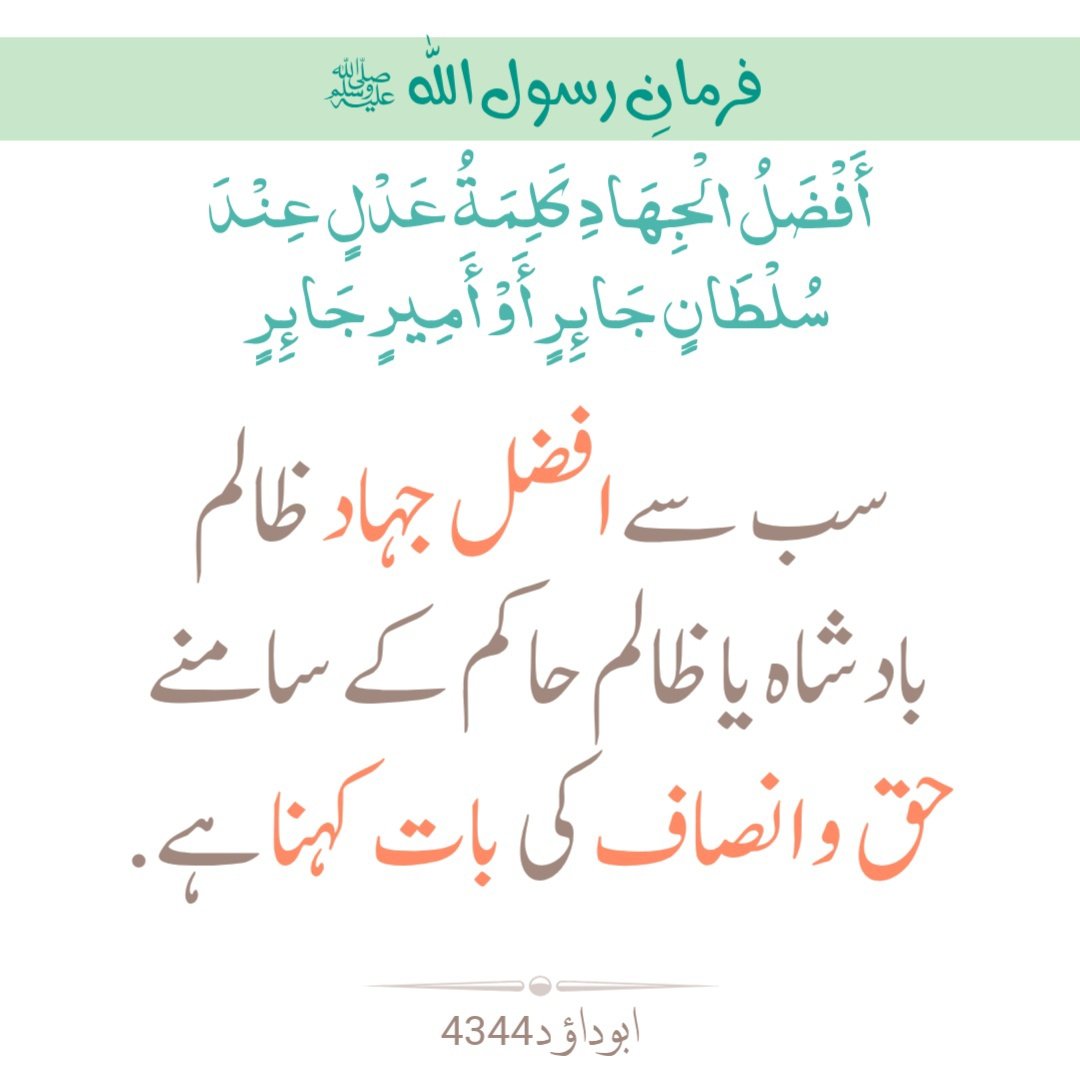 فرمانِ رسول اللہ ﷺ
أَفْضَلُ الْجِهَادِ كَلِمَةُ عَدْلٍ عِنْدَ
سُلْطَانٍ جَائِرٍ أَوْ أَمِيرٍ جَائِرٍ
سب سے افضل جہاد ظالم
بادشاہ یا ظالم حاکم کے سامنے
حق و انصاف کی بات کہنا ہے.
ابوداؤد4344